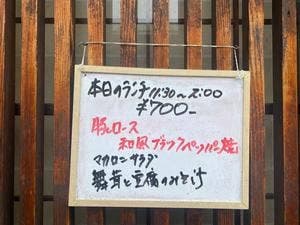 本日のランチ 11:30〜2:00
¥700-
豚ロース
和風ブラックペッパー焼
マカロニサラダ
舞茸と豆腐のみそ汁